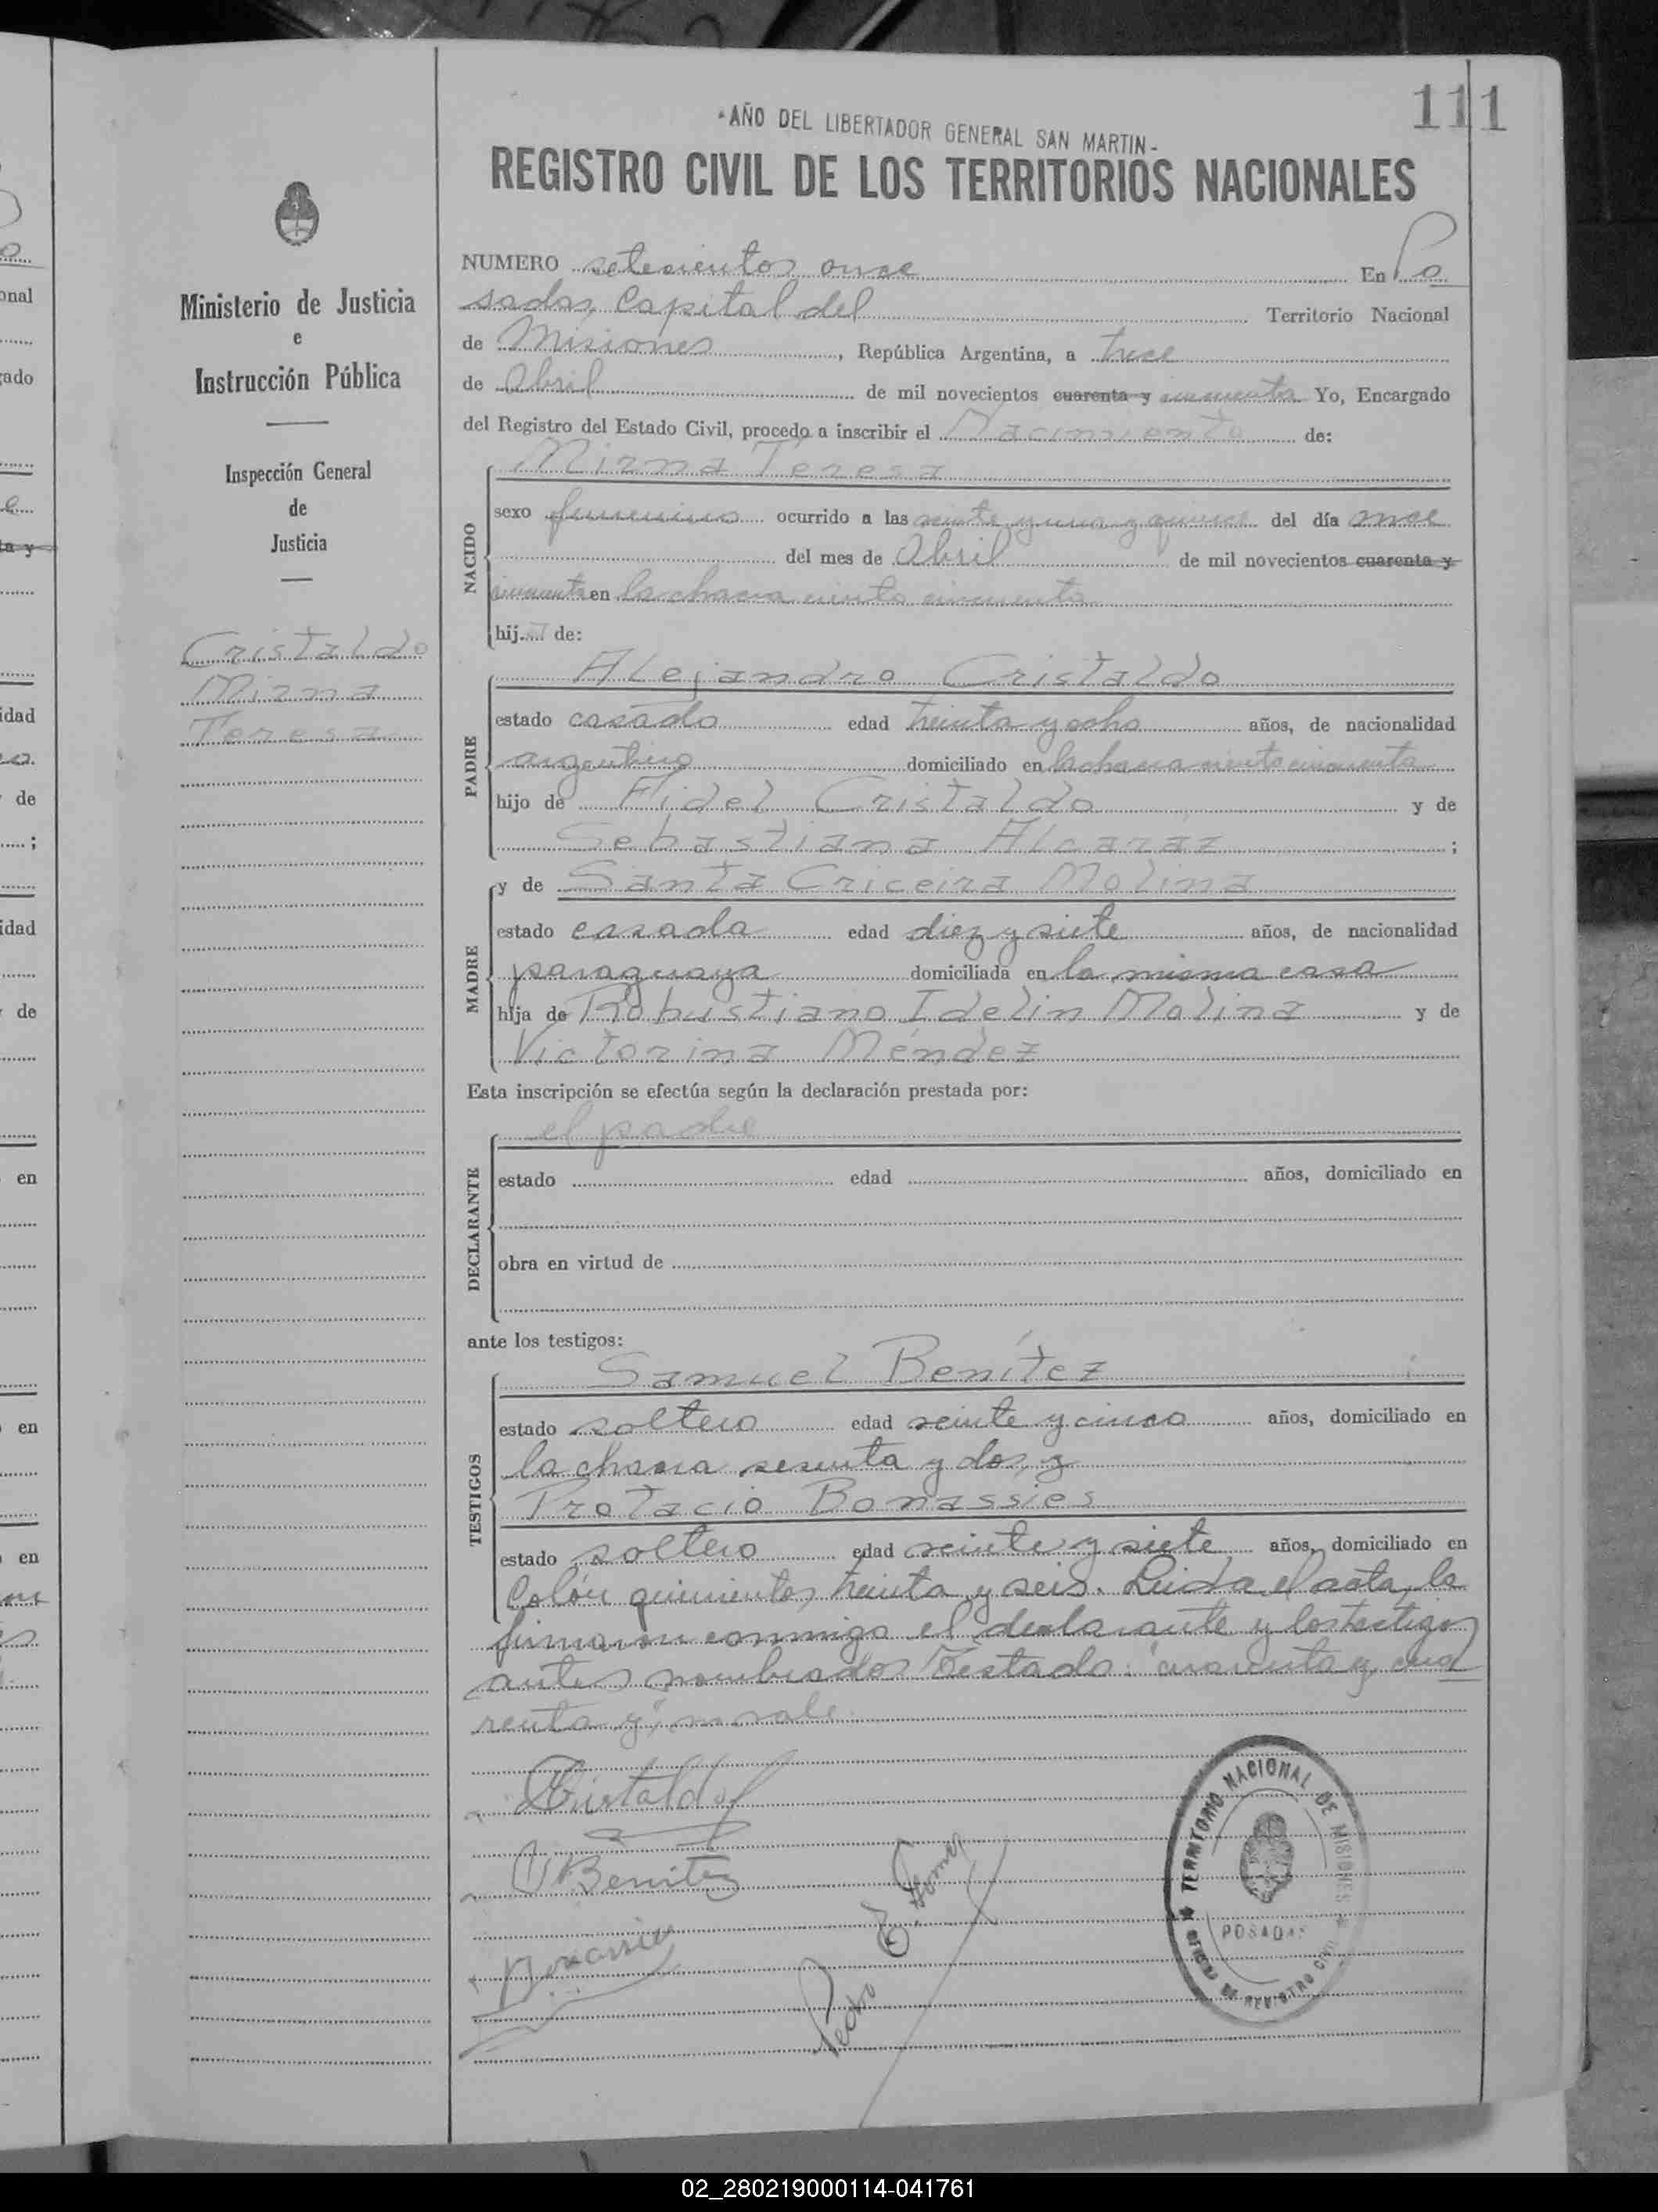 111
"AÑO DEL LIBERTADOR GENERAL SAN MARTIN-
REGISTRO CIVIL DE LOS TERRITORIOS NACIONALES
Ministerio de Justicia
e
Instrucción Pública
Inspección General
de
Justicia
Cristaldo
Mirna
Teresa
NUMERO setecientos once En Po
sadas, Capital del Territorio Nacional
de Misiones, República Argentina, a trece
de Abril de mil novecientos cuarenta y cincuenta Yo, Encargado
del Registro del Estado Civil, procedo a inscribir el Nacimiento de:
NACIDO
Mirna Teresa
sexo femenino ocurrido a las veinte y una y quince del día once
del mes de Abril de mil novecientos cuarenta y
cincuenta en la chacra ciento cincuenta
hij a de:
PADRE
Alejandro Cristaldo
estado casado edad treinta y ocho años, de nacionalidad
argentino domiciliado en la chacra ciento cincuenta
hijo de Fidel Cristaldo y de
Sebastiana Alcaraz ;
MADRE
y de Santa Criceira Molina
estado casada edad diez y siete años, de nacionalidad
paraguaya domiciliada en la misma casa
hija de Robustiano Idelin Molina y de
Victorina Méndez
Esta inscripción se efectúa según la declaración prestada por:
DECLARANTE
el padre
estado edad años, domiciliado en
obra en virtud de
ante los testigos:
TESTIGOS
Samuel Benítez
estado soltero edad veinte y cinco años, domiciliado en
la chacra sesenta y dos, y
Protacio Bonassies
estado soltero edad veinte y siete años, domiciliado en
Colón quinientos treinta y seis. Leída el acta, la
firmaron conmigo el declarante y los testigos
antes nombrados Testado: "cuarenta y, cua
renta y", no vale.
Cristaldo
Benitez
Bonassies
Pedro E. Gomez
TERRITORIO NACIONAL DE MISIONES
POSADAS
OFICINA DE REGISTRO CIVIL
onal
gado
ta y
idad
de
;
idad
de
en
en
en
02_280219000114-041761